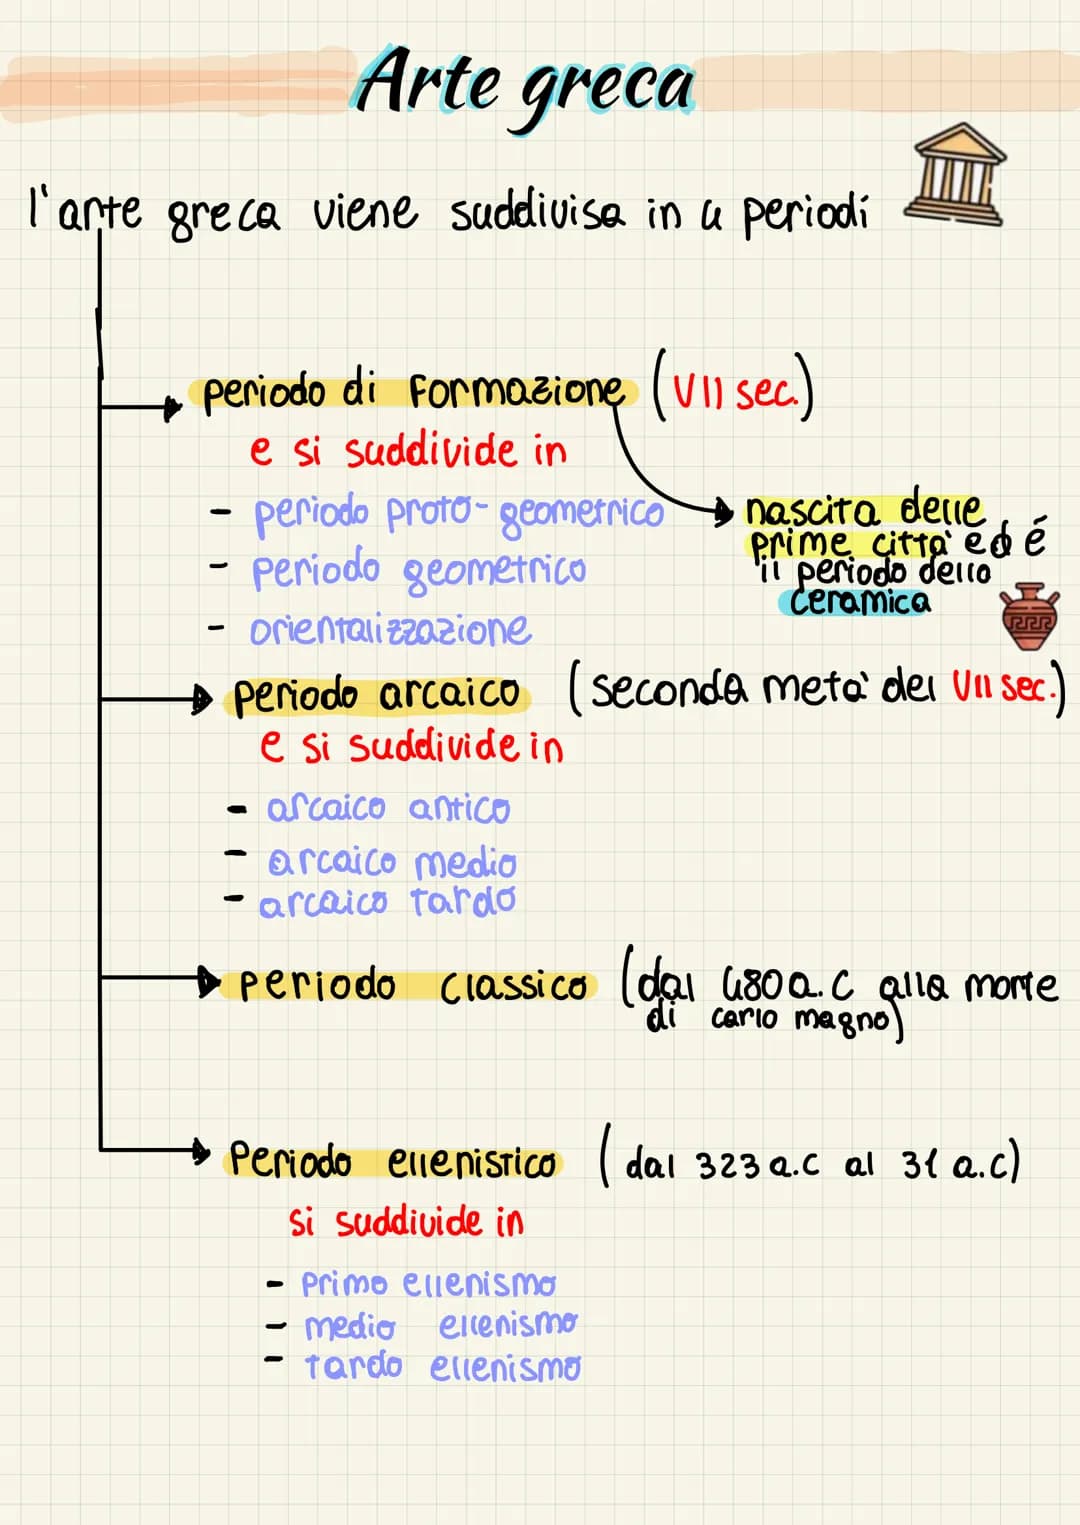 Arte greca
l'arte greca viene suddivisa in 4 periodi
periodo di Formazione (VII sec.)
e si suddivide in
- periodo proto-geometrico
- periodo geometrico
- orientalizzazione
nascita delle
prime citta' ed é
il periodo dello
ceramica
periodo arcaico (seconda meta' del VII sec.)
e si suddivide in
- arcaico antico
- arcaico medio
- arcaico tardo
periodo classico (dal 480 a.C alla morte
di carlo magno)
Periodo ellenistico (dal 323 a.c al 31 a.c)
si suddivide in
- primo ellenismo
- medio ellenismo
- tardo ellenismo